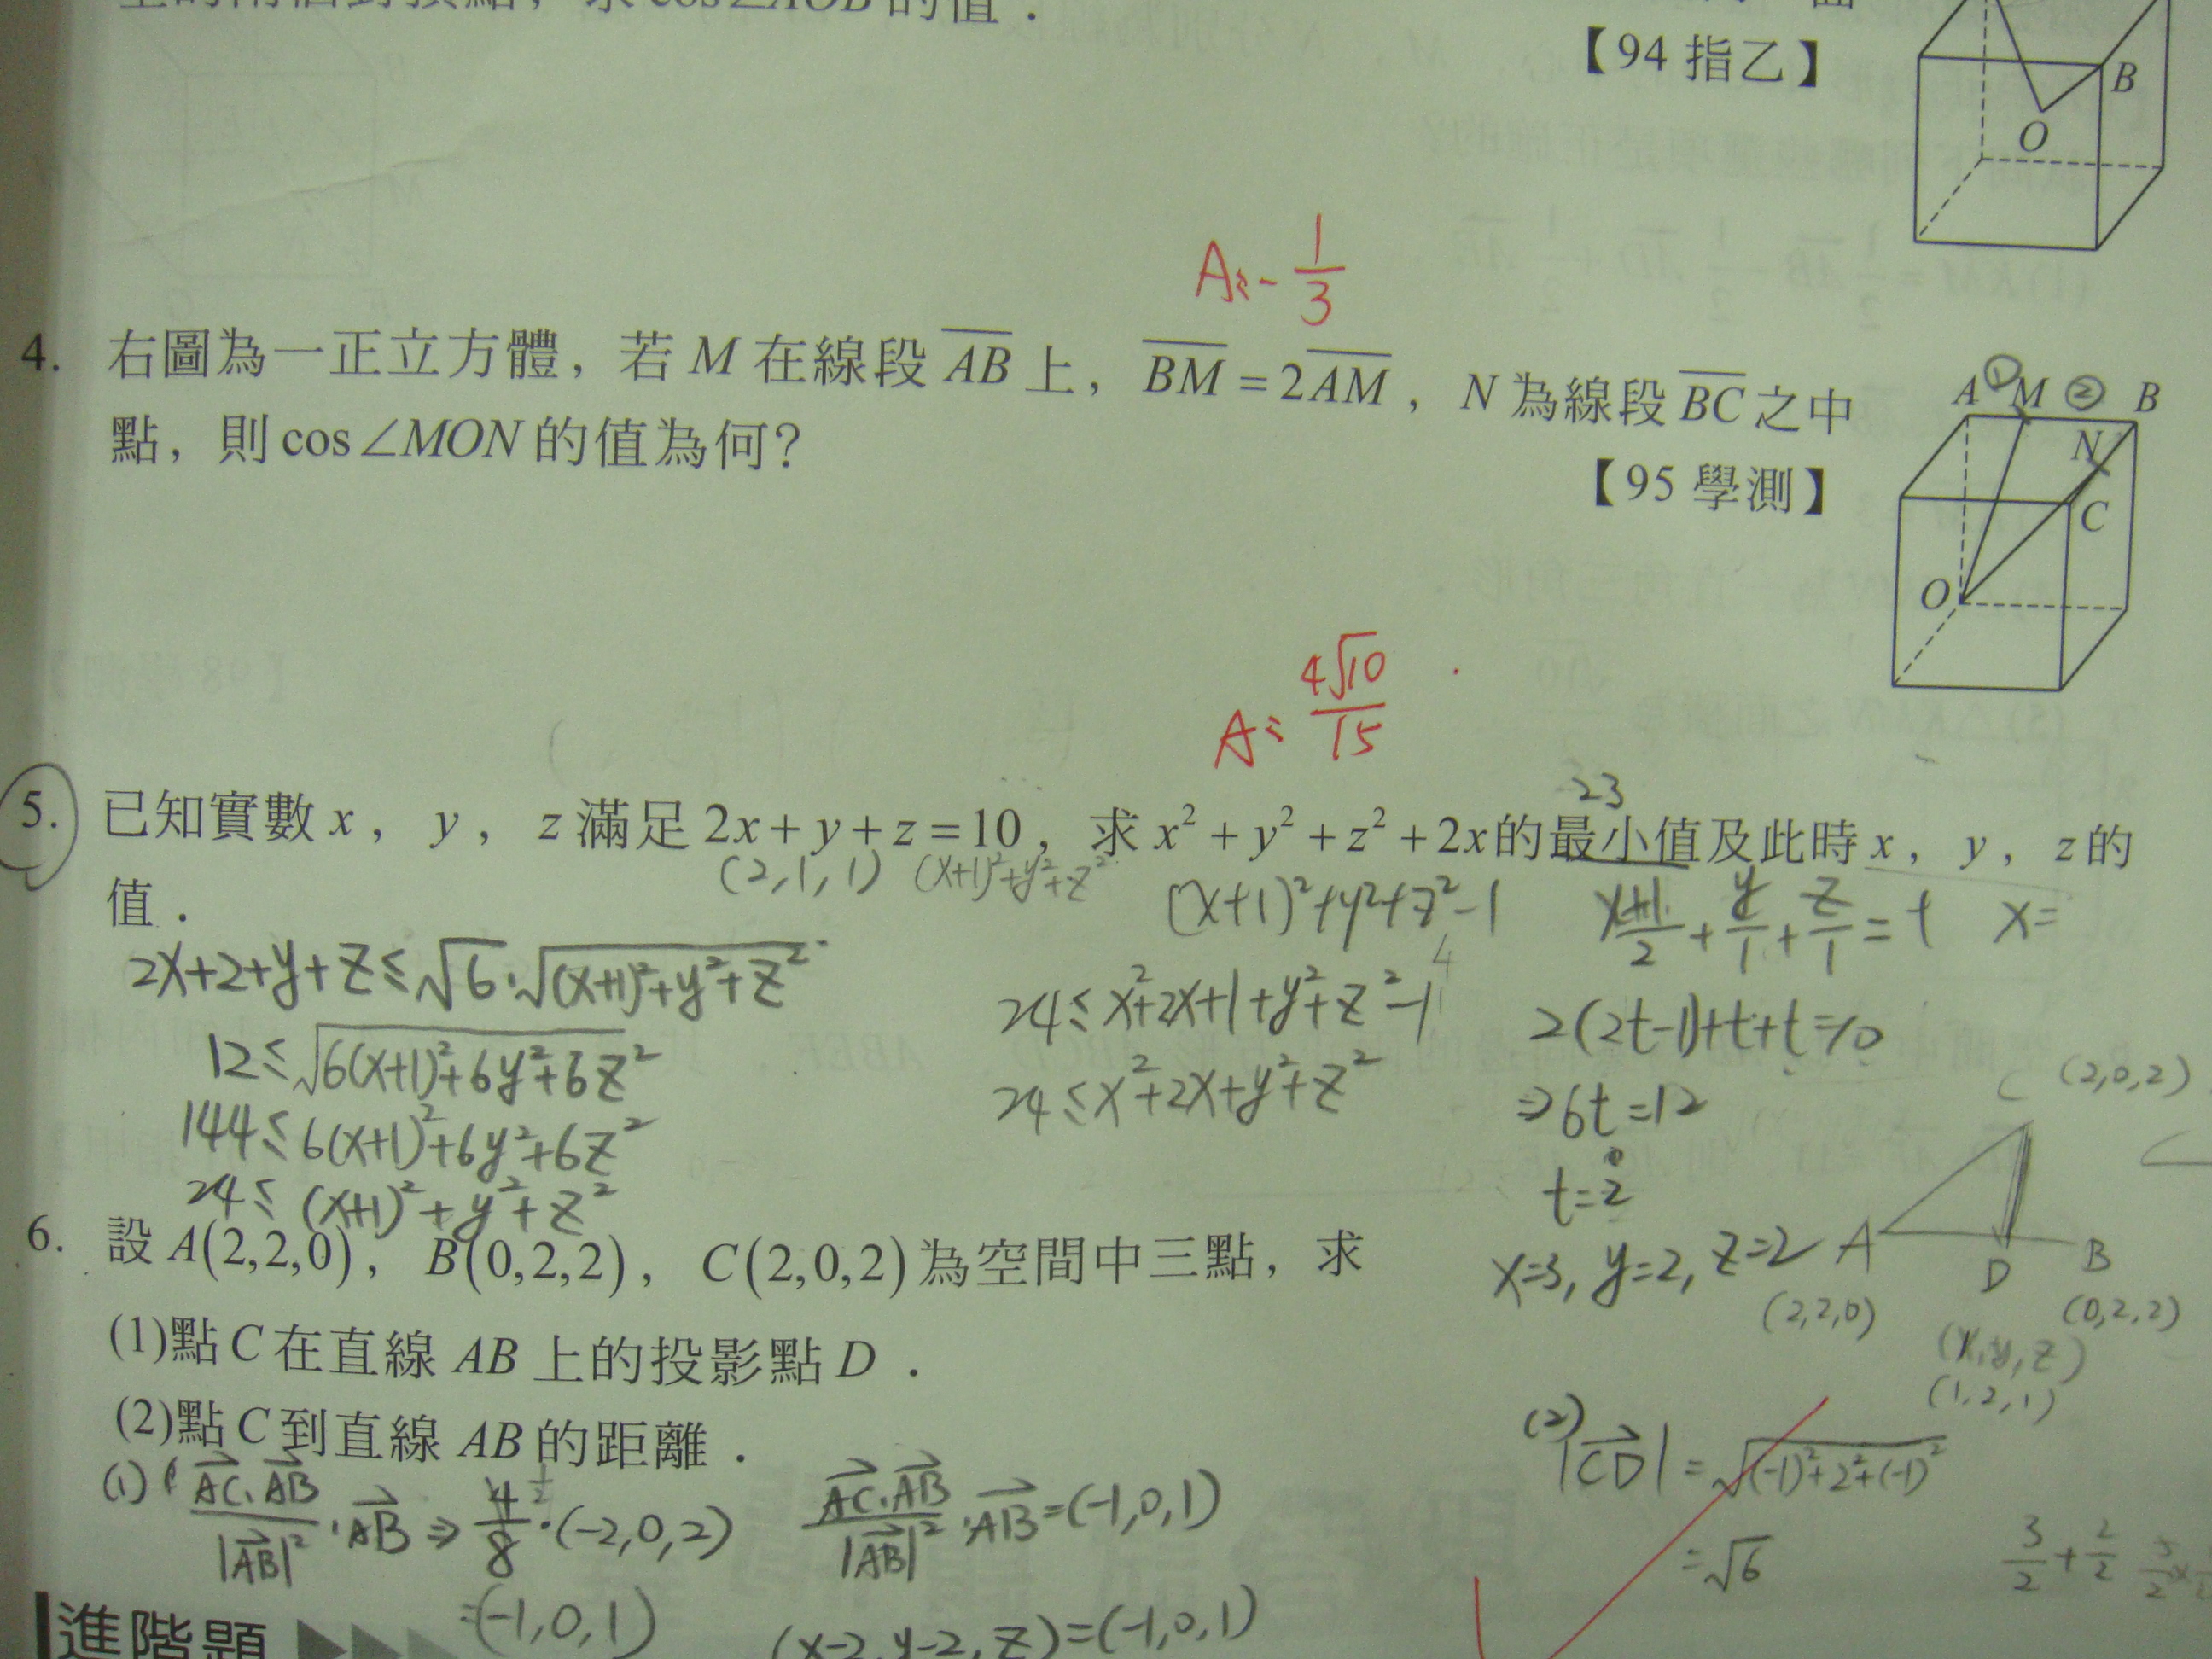 cos∠AOB 的值．
【94 指乙】
B
O
A:-1/3
4. 右圖為一正立方體，若 M 在線段 AB 上，BM = 2AM，N 為線段 BC 之中
點，則 cos∠MON 的值為何？
【95 學測】
A ① M ② B
N
C
O
A: 4√10/15
5. 已知實數 x，y，z 滿足 2x + y + z = 10，求 x² + y² + z² + 2x 的最小值及此時 x，y，z 的
值．
23
(2,1,1) (x+1)²+y²+z²
(x+1)²+y²+z²-1
(x+1)/2 + y/1 + z/1 = t x=
2x+2+y+z ≤ √6·√((x+1)²+y²+z²)
12 ≤ √(6(x+1)²+6y²+6z²)
144 ≤ 6(x+1)²+6y²+6z²
24 ≤ (x+1)²+y²+z²
24 ≤ x²+2x+1+y²+z²-1
24 ≤ x²+2x+y²+z²
2(2t-1)+t+t=10
⇒ 6t=12
t=2
x=3, y=2, z=2
C (2,0,2)
A
D
B
(2,2,0)
(0,2,2)
(x,y,z)
(1,2,1)
6. 設 A(2,2,0)，B(0,2,2)，C(2,0,2) 為空間中三點，求
(1)點 C 在直線 AB 上的投影點 D．
(2)點 C 到直線 AB 的距離．
(1) AC·AB/|AB|² ·AB ⇒ 4/8·(-2,0,2)
=(-1,0,1)
AC·AB/|AB|² ·AB=(-1,0,1)
(x-2,y-2,z)=(-1,0,1)
(2) |CD| = √((-1)²+2²+(-1)²)
=√6
3/2+2/2
進階題